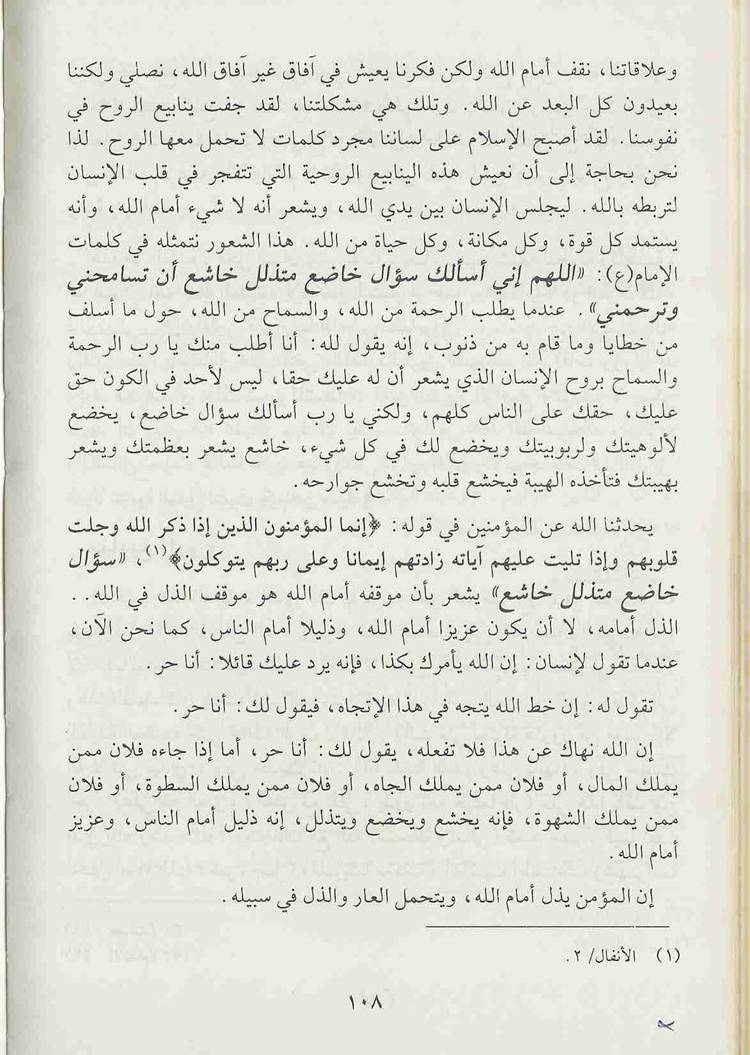 وعلاقاتنا، نقف أمام الله ولكن فكرنا يعيش في آفاق غير آفاق الله، نصلي ولكننا
بعيدون كل البعد عن الله. وتلك هي مشكلتنا، لقد جفت ينابيع الروح في
نفوسنا. لقد أصبح الإسلام على لساننا مجرد كلمات لا تحمل معها الروح. لذا
نحن بحاجة إلى أن نعيش هذه الينابيع الروحية التي تتفجر في قلب الإنسان
لتربطه بالله. ليجلس الإنسان بين يدي الله، ويشعر أنه لا شيء أمام الله، وأنه
يستمد كل قوة، وكل مكانة، وكل حياة من الله. هذا الشعور نتمثله في كلمات
الإمام(ع): «اللهم إني أسألك سؤال خاضع متذلل خاشع أن تسامحني
وترحمني». عندما يطلب الرحمة من الله، والسماح من الله، حول ما أسلف
من خطايا وما قام به من ذنوب، إنه يقول لله: أنا أطلب منك يا رب الرحمة
والسماح بروح الإنسان الذي يشعر أن له عليك حقا، ليس لأحد في الكون حق
عليك، حقك على الناس كلهم، ولكني يا رب أسألك سؤال خاضع، يخضع
لألوهيتك ولربوبيتك ويخضع لك في كل شيء، خاشع يشعر بعظمتك ويشعر
بهيبتك فتأخذه الهيبة فيخشع قلبه وتخشع جوارحه.
يحدثنا الله عن المؤمنين في قوله: ﴿إنما المؤمنون الذين إذا ذكر الله وجلت
قلوبهم وإذا تليت عليهم آياته زادتهم إيمانا وعلى ربهم يتوكلون﴾(١)، «سؤال
خاضع متذلل خاشع» يشعر بأن موقفه أمام الله هو موقف الذل في الله..
الذل أمامه، لا أن يكون عزيزا أمام الله، وذليلا أمام الناس، كما نحن الآن،
عندما تقول لإنسان: إن الله يأمرك بكذا، فإنه يرد عليك قائلا: أنا حر.
تقول له: إن خط الله يتجه في هذا الإتجاه، فيقول لك: أنا حر.
إن الله نهاك عن هذا فلا تفعله، يقول لك: أنا حر، أما إذا جاءه فلان ممن
يملك المال، أو فلان ممن يملك الجاه، أو فلان ممن يملك السطوة، أو فلان
ممن يملك الشهوة، فإنه يخشع ويخضع ويتذلل، إنه ذليل أمام الناس، وعزيز
أمام الله.
إن المؤمن يذل أمام الله، ويتحمل العار والذل في سبيله.
(١) الأنفال/ ٢.
١٠٨